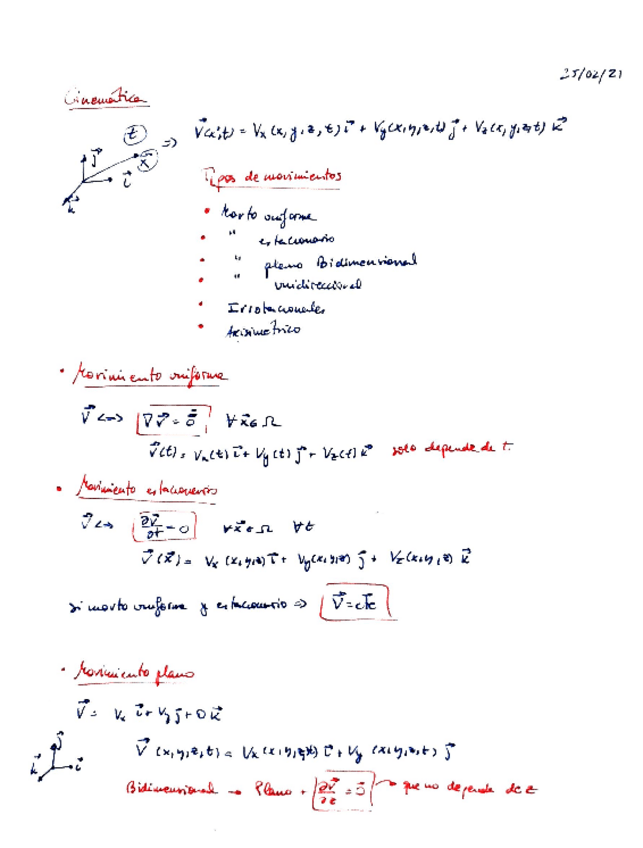 25/02/21
Cinemática
t
j⃗ x⃗ i⃗ k⃗
=> V⃗(x⃗,t) = Vx(x,y,z,t) i⃗ + Vy(x,y,z,t) j⃗ + Vz(x,y,z,t) k⃗
Tipos de movimientos
• Movto uniforme
• " estacionario
• " plano Bidimensional
• " unidireccional
• Irrotacionales
• Axisimétrico
• Movimiento uniforme
V⃗ <=> ∇V⃗ = 0̿ ∀ x⃗ ∈ Ω
V⃗(t) = Vx(t) i⃗ + Vy(t) j⃗ + Vz(t) k⃗ solo depende de t.
• Movimiento estacionario
V⃗ <-> ∂V⃗/∂t = 0 ∀ x⃗ ∈ Ω ∀t
V⃗(x⃗) = Vx(x,y,z) i⃗ + Vy(x,y,z) j⃗ + Vz(x,y,z) k⃗
si movto uniforme y estacionario => V⃗ = cte
• Movimiento plano
V⃗ = Vx i⃗ + Vy j⃗ + 0 k⃗
j⃗ k⃗ i⃗
V⃗(x,y,z,t) = Vx(x,y,z,t) i⃗ + Vy(x,y,z,t) j⃗
Bidimensional → Plano + ∂V⃗/∂z = 0⃗ → que no depende de z